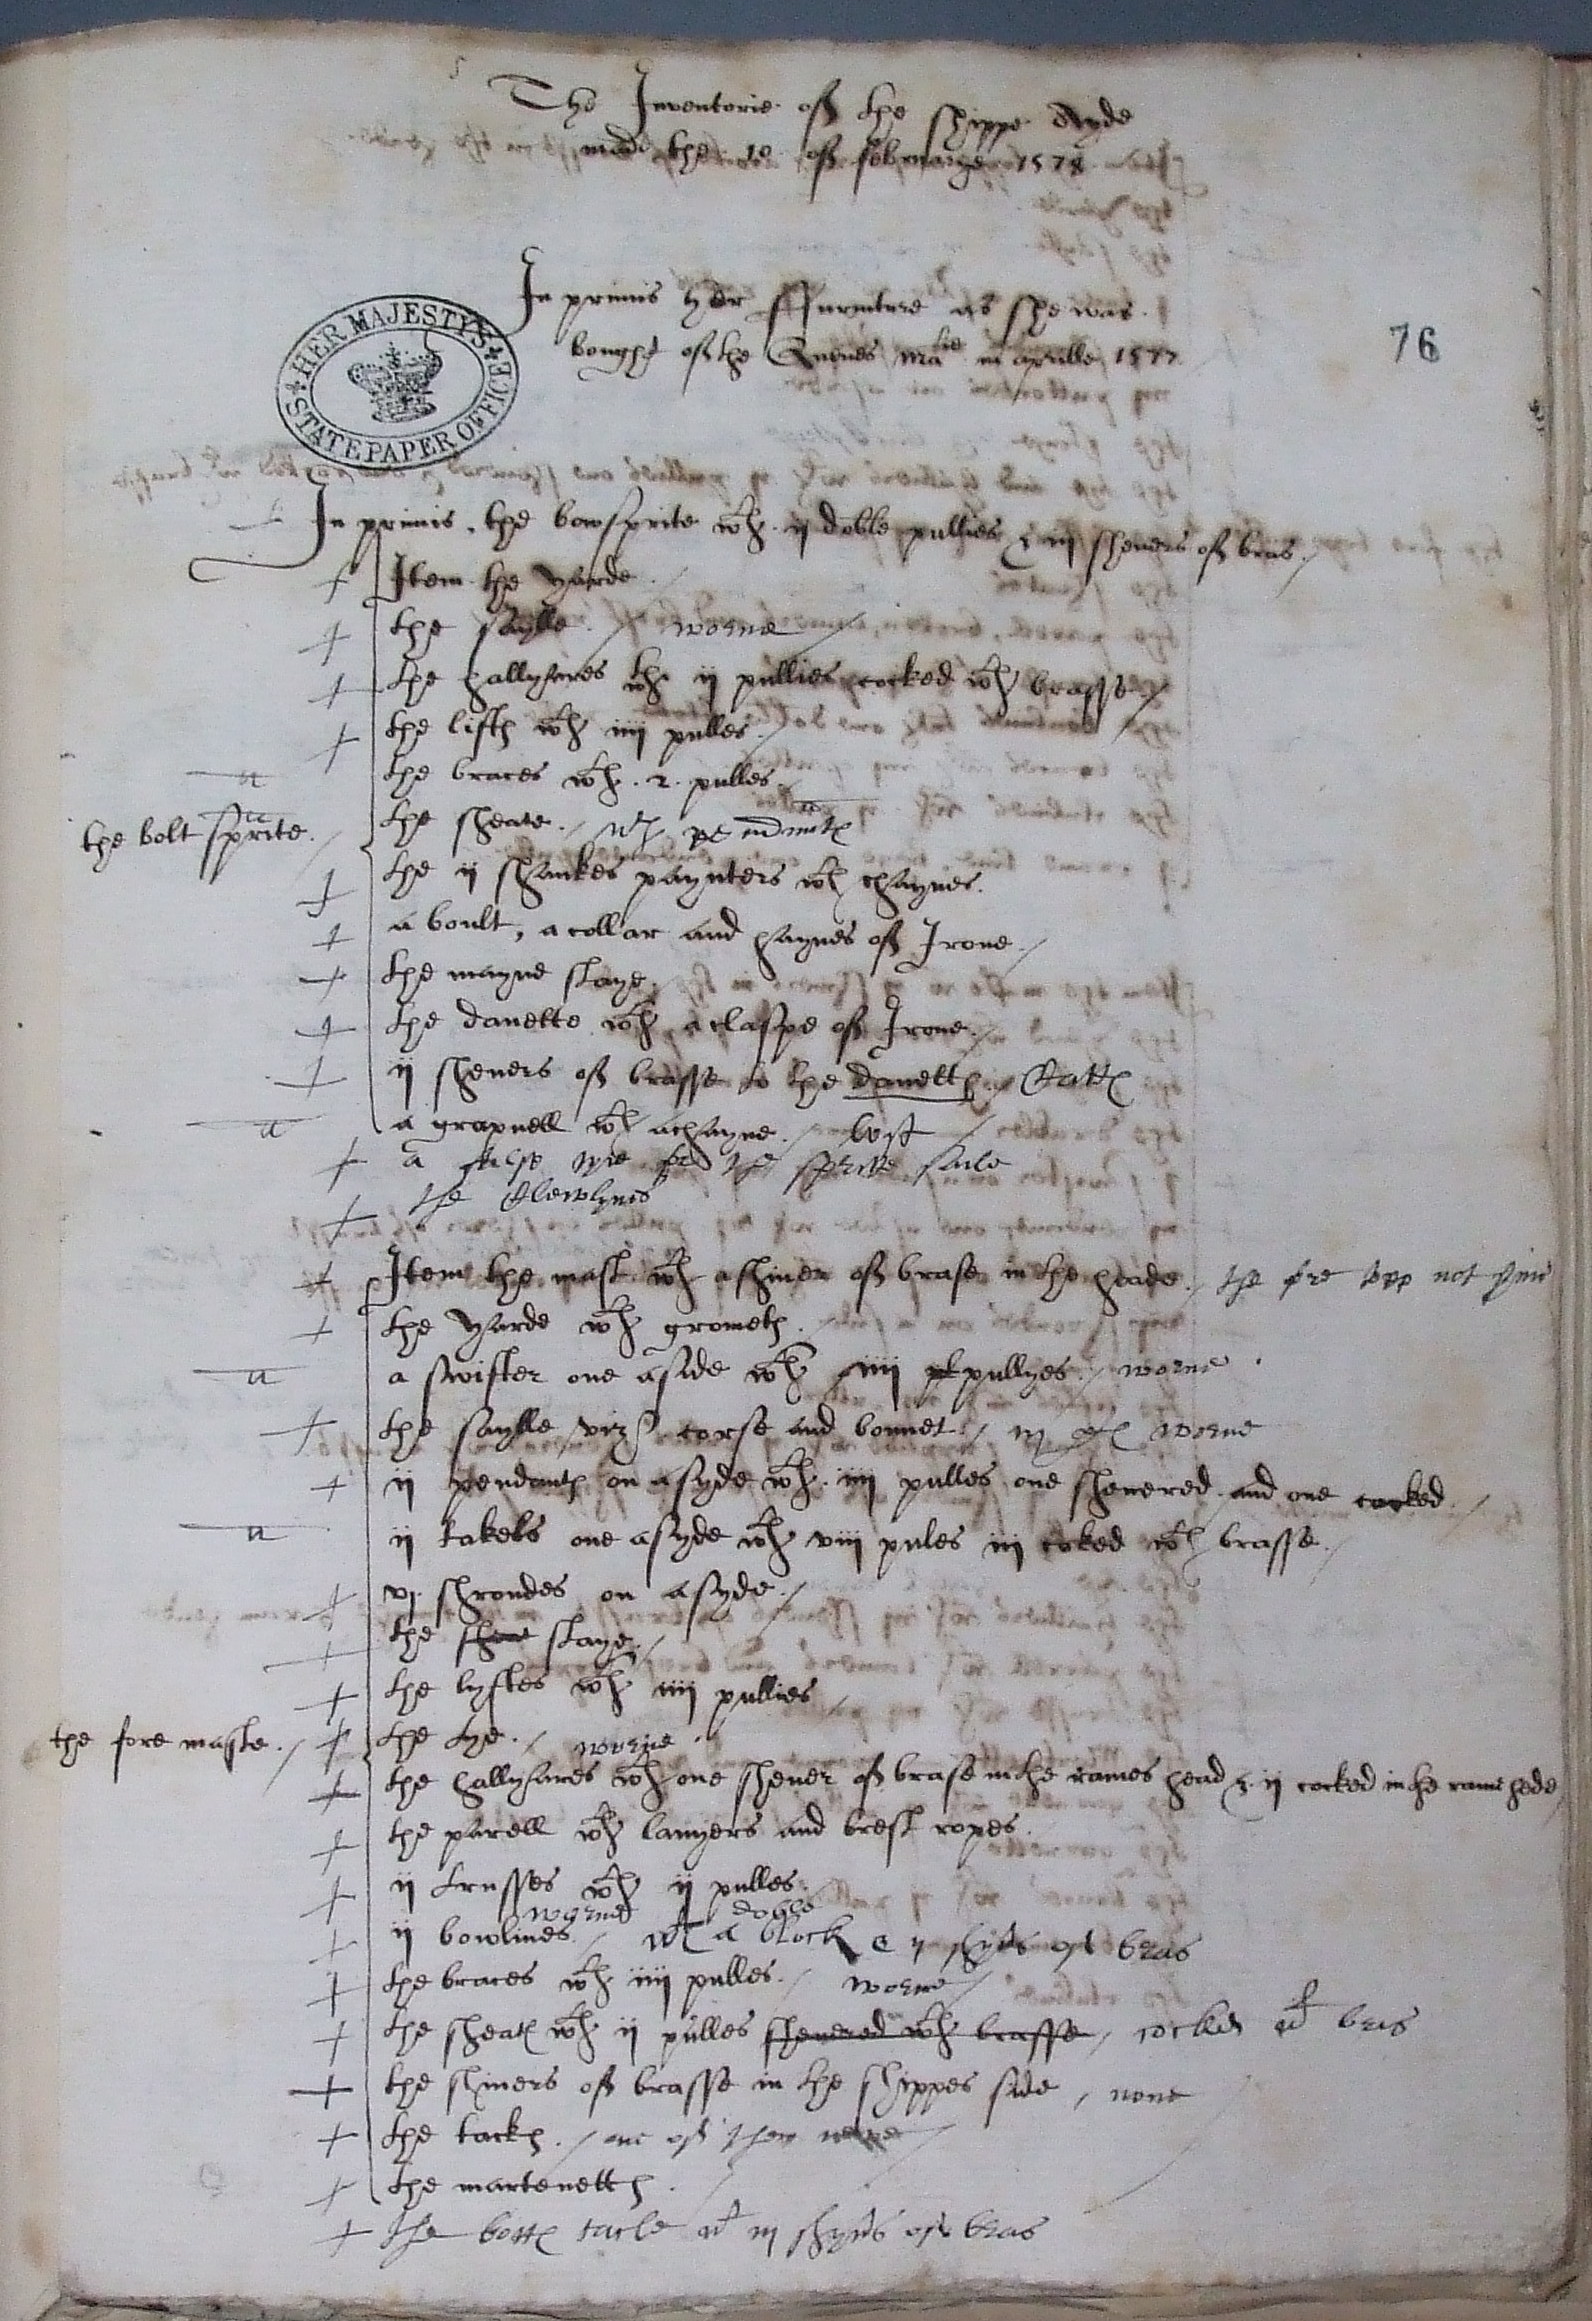 The Inventorie of the shippe Ayde
made the 10 of februarye 1578
In primis her ffurniture as she was
bought of the Quenes Matie in aprille 1577
76
HER MAJESTY'S STATE PAPER OFFICE
In primis, the bowsprite wth ij doble pullies & iij shevers of bras
Item the yarde
the saylle worne
the hallyares wth ij pullies cocked wth brasse
the liftes wth iiij pulles
the braces wth 2 pulles
the bolt sprite
the sheate wth pendantes
the ij shankes paynters wth chaynes
a boult, a collar and chaynes of Irone
the mayne staye
the davette wth a claspe of Irone
ij shevers of brasse to the davettes
a grapnell wth a chayne lost
a false tye for the sprite saile
the Clewlynes
Item the mast wth a shiver of brase in the heade the fore topp not
the yarde wth grometes
a swifter one a side wth iiij pullyes worne
the saylle viz corse and bonnet worne
ij pendantes on a syde wth iiij pulles one shevered and one cocked
ij takels one a syde wth viij pules iij coked wth brasse
vj shroudes on a syde
the staye
the lyftes wth iiij pullies
the fore maste
the tye worne
the hallyares wth one shever of brase in the rames head & ij cocked in the rame hede
the parell wth lanyers and brest ropes
ij trusses wth ij pulles
worne doble
ij bowlines wth a block & ij shyvers of bras
the braces wth iiij pulles worne
the sheates wth ij pulles shevered wth brasse cocked wt bras
the shivers of brasse in the shippes side, none
the tackes one of them newe
the martenettes
the botes tacle wt iij shyvers of bras